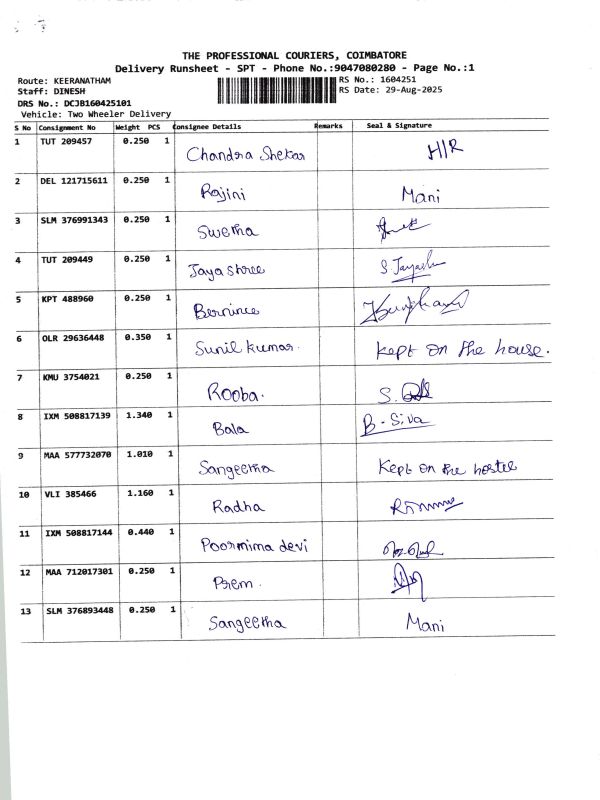 THE PROFESSIONAL COURIERS, COIMBATORE
Delivery Runsheet - SPT - Phone No.:9047080280 - Page No.:1
Route: KEERANATHAM RS No.: 1604251
Staff: DINESH RS Date: 29-Aug-2025
DRS No.: DCJB160425101
Vehicle: Two Wheeler Delivery
S No Consignment No Weight PCS Consignee Details Remarks Seal & Signature
1 TUT 209457 0.250 1 Chandra Shekar H/R
2 DEL 121715611 0.250 1 Rajini Mani
3 SLM 376991343 0.250 1 Swetha
4 TUT 209449 0.250 1 Jayashree S. Jayashr
5 KPT 488960 0.250 1 Bernince
6 OLR 29636448 0.350 1 Sunil kumar. kept on the house.
7 KMU 3754021 0.250 1 Rooba. S.
8 IXM 508817139 1.340 1 Bala B - Siva
9 MAA 577732070 1.010 1 Sangeetha Kept on the hostel
10 VLI 385466 1.160 1 Radha
11 IXM 508817144 0.440 1 Poormima devi
12 MAA 712017301 0.250 1 Prem.
13 SLM 376893448 0.250 1 Sangeetha Mani